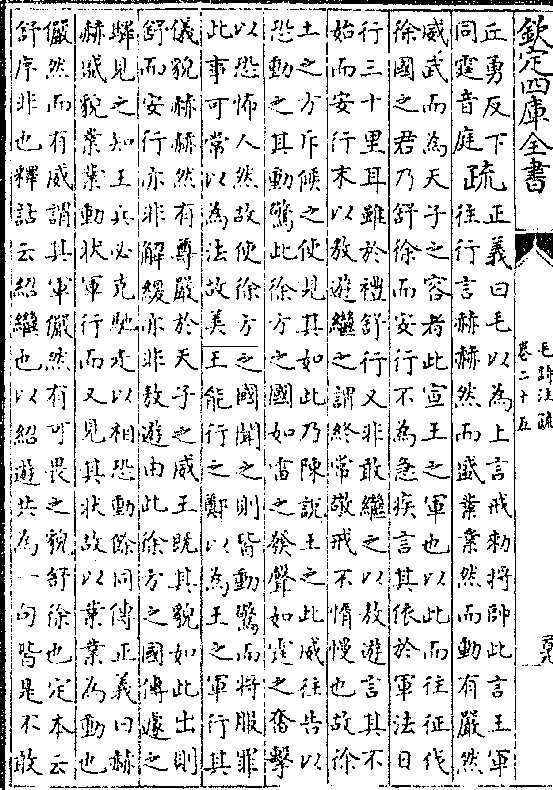 欽定四庫全書
毛詩注疏
卷二十五
丘勇反下
同霆音庭
疏
正義曰毛以為上言戒勅將帥此言王軍
往行言赫赫然而盛業業然而動有嚴然
威武而為天子之容者此宣王之軍也以此而往征伐
徐國之君乃舒徐而安行不為急疾言其依於軍法日
行三十里耳雖於禮舒行又非敢繼之以敖遊言其不
始而安行末以敖遊繼之謂終常敬戒不惰慢也故徐
土之方斥候之使見其如此乃陳說王之此威往告以
恐動之其動驚此徐方之國如雷之發聲如霆之奮擊
以恐怖人然故使徐方之國聞之則皆動驚而將服罪
此事可常以為法故美王能行之鄭以為王之軍行其
儀貌赫赫然有尊嚴於天子之威王既其貌如此出則
舒而安行亦非解緩亦非敖遊由此徐方之國傳遽之
驛見之知王兵必克馳走以相恐動餘同傳正義曰赫
赫盛貌業業動狀軍行而又見其狀故以業業為動也
儼然而有威謂其軍儼然有可畏之貌舒徐也定本云
舒序非也釋詁云紹繼也以紹遊共為一句皆是不敢